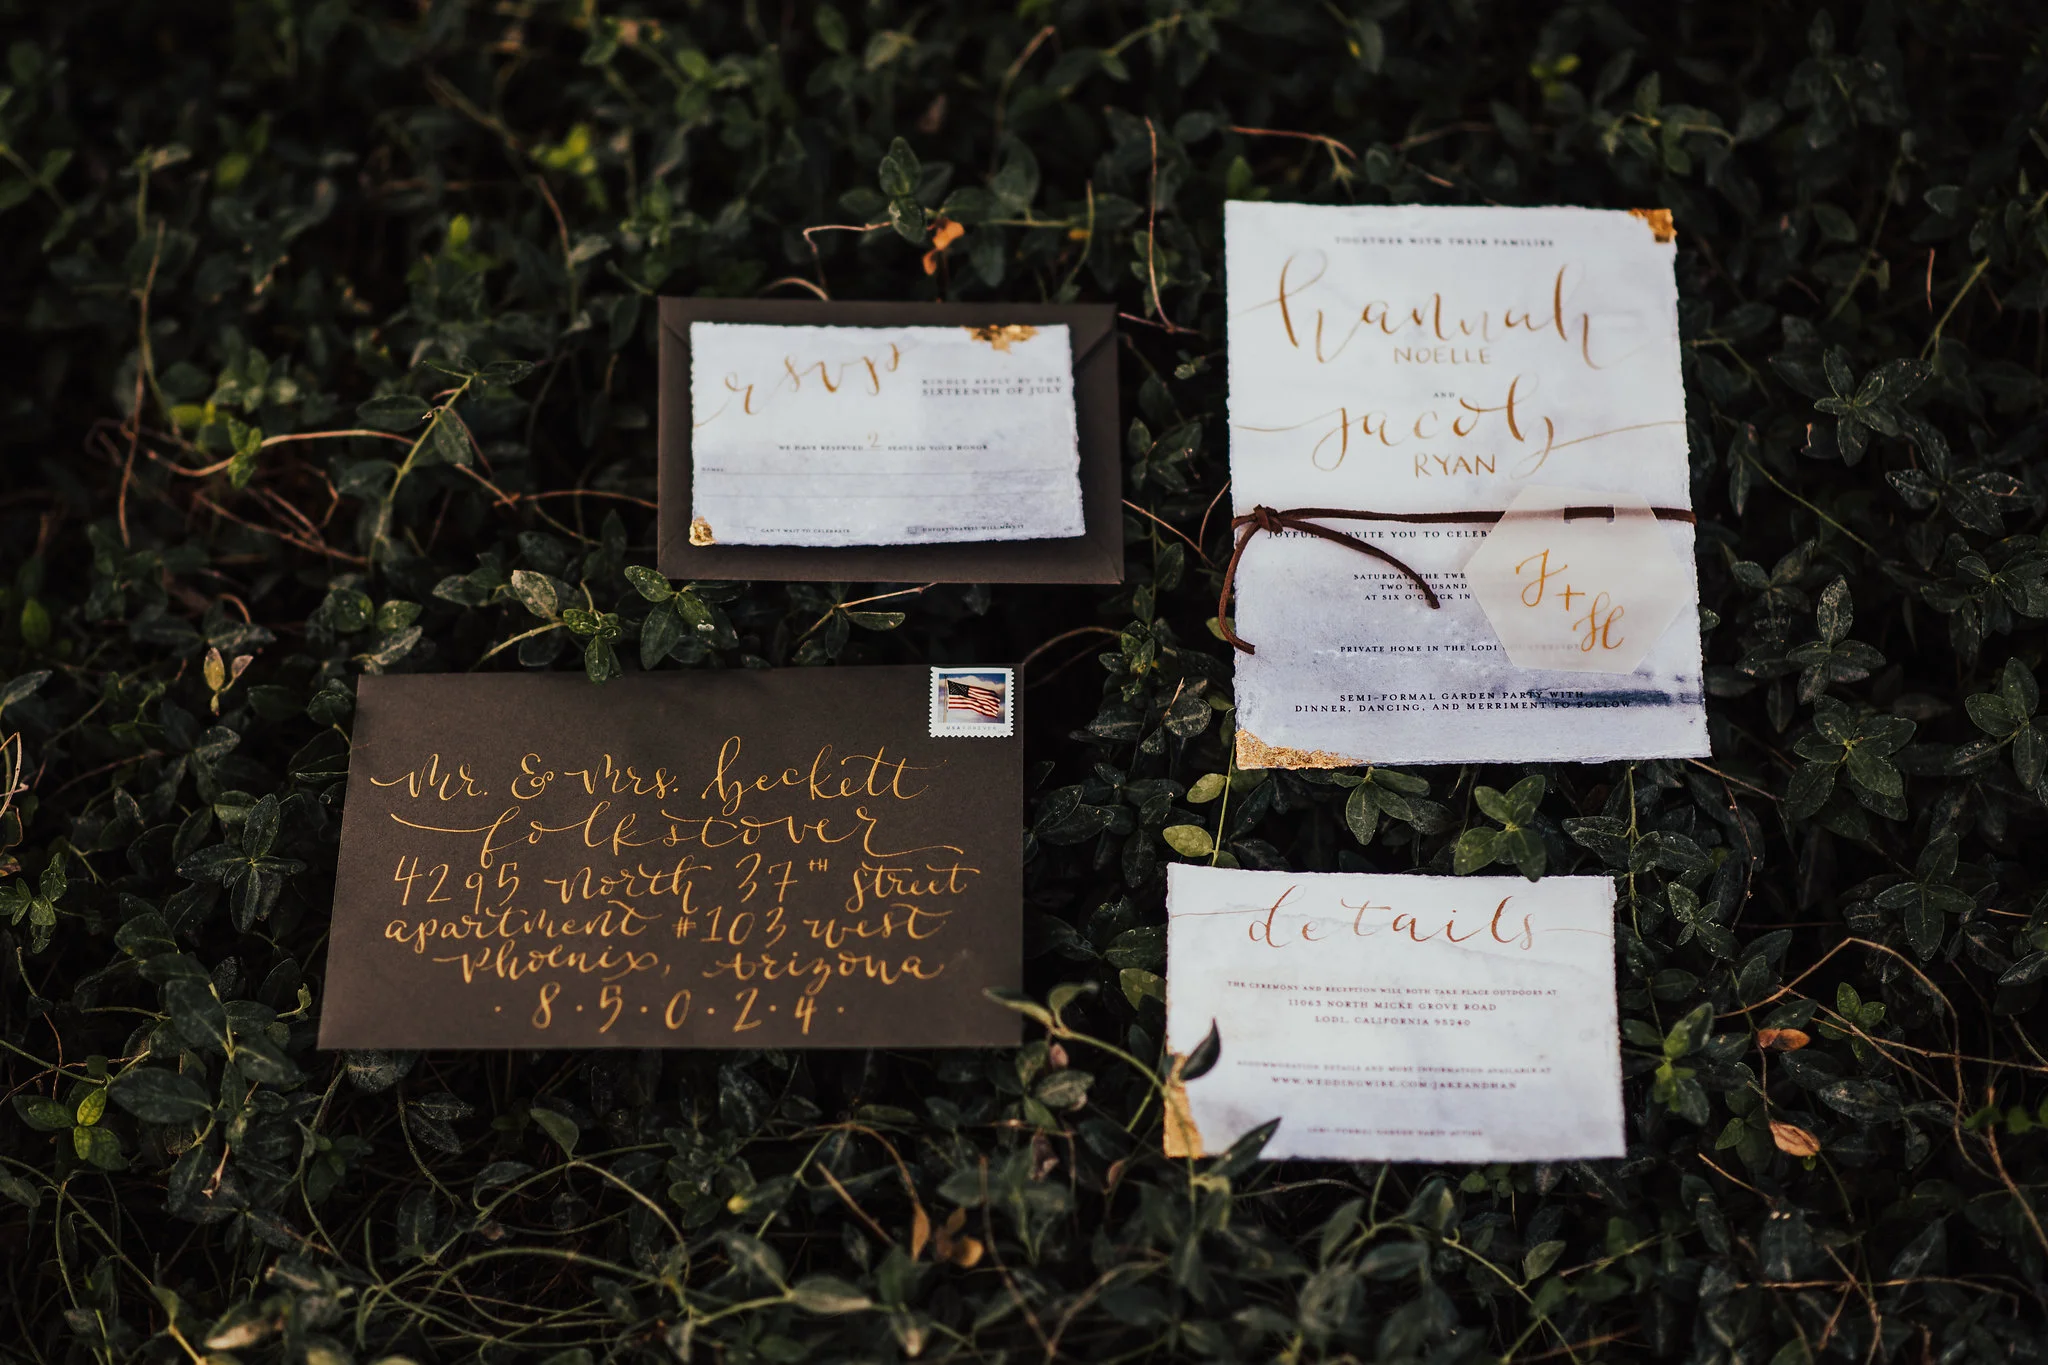 rsvp
KINDLY REPLY BY THE
SIXTEENTH OF JULY
WE HAVE RESERVED 2 SEATS IN YOUR HONOR
NAMES:
CAN'T WAIT TO CELEBRATE
UNFORTUNATELY WILL MISS IT
TOGETHER WITH THEIR FAMILIES
hannah
NOELLE
AND
jacob
RYAN
INVITE YOU TO
SATURDAY, THE
TWO THOUSAND
AT SIX O'CLOCK IN
PRIVATE HOME IN THE LODI
SEMI-FORMAL GARDEN PARTY WITH
DINNER, DANCING, AND MERRIMENT TO FOLLOW
J+H
Mr. & Mrs. beckett
folkstover
4295 North 37TH Street
apartment #103 west
Phoenix, Arizona
·8·5·0·2·4·
USA FOREVER
details
THE CEREMONY AND RECEPTION WILL BOTH TAKE PLACE OUTDOORS AT
11063 NORTH MICKE GROVE ROAD
LODI, CALIFORNIA 95240
ACCOMMODATION DETAILS AND MORE INFORMATION AVAILABLE AT
WWW.WEDDINGWIRE.COM/JAKEANDHAN
SEMI-FORMAL GARDEN PARTY ATTIRE